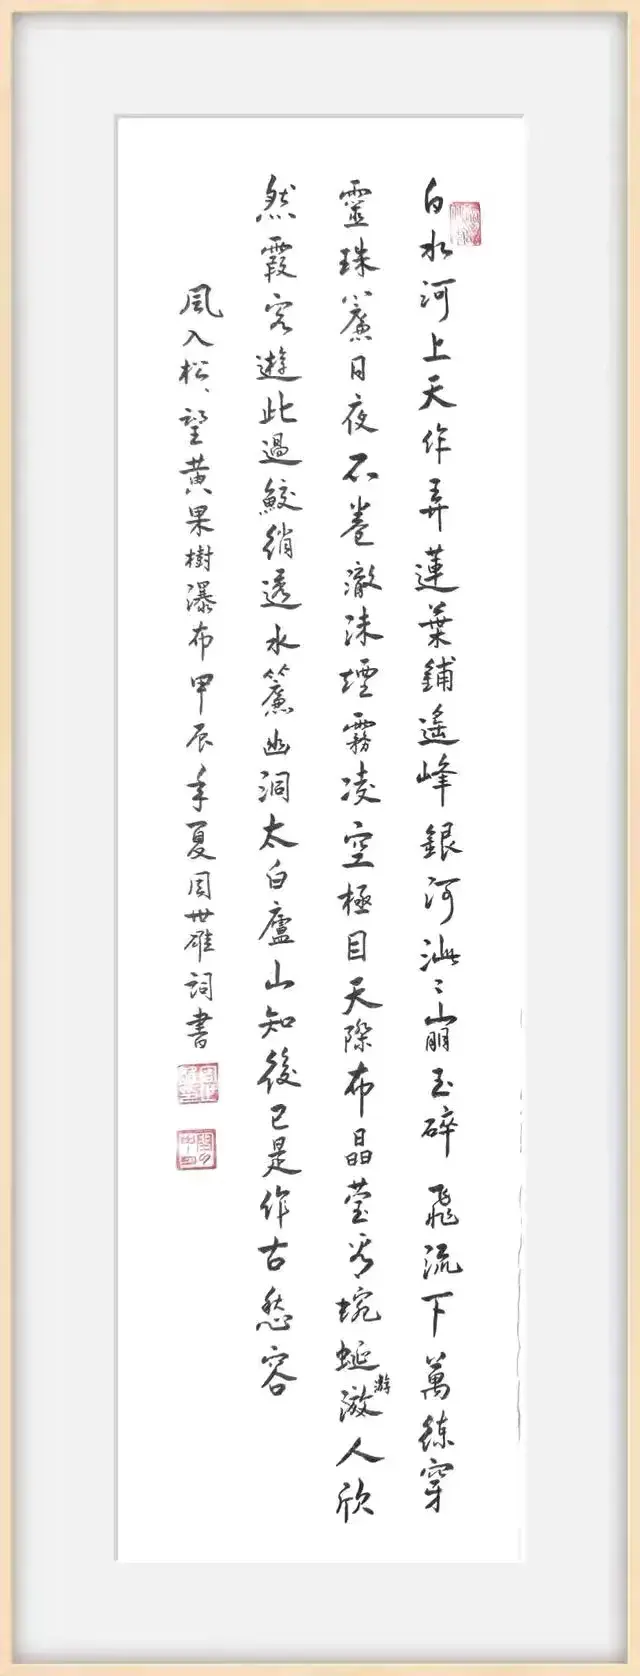 白水河上天作弄蓮葉鋪遙峰銀河泚〻崩玉碎飛流下萬練穿
靈珠簾日夜不卷澈沫煙霧凌空極目天際布晶莹若蜿蜒游人欣
然霞客遊此過鮫綃透水簾幽洞太白廬山知後已是作古愁容
風入松、望黃果樹瀑布甲辰年夏周世雄詞書